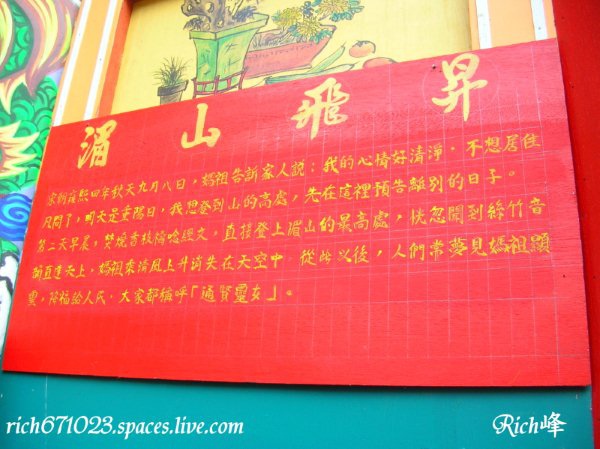 湄山飛昇
宋朝雍熙四年秋天九月八日，媽祖告訴家人說：我的心情好清淨，不想居住
凡間了，明天是重陽日，我想登到山的高處，先在這裡預告離別的日子。
第二天早晨，焚燒香枝偷唸經文，直接登上湄山的最高處，恍忽聞到絲竹音
調直達天上，媽祖乘倚風上升消失在天空中，從此以後，人們常夢見媽祖顯
靈，降福給人民，大家都稱呼「通賢靈女」。
rich671023.spaces.live.com
Rich峰